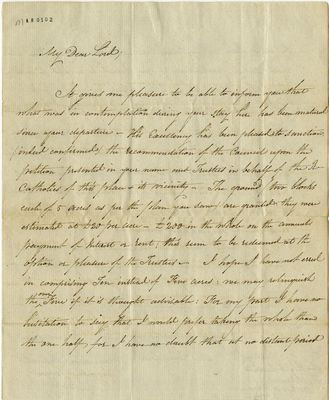 MAR0502
My Dear Lord,
It gives me pleasure to be able to inform you that
what was in contemplation during your stay here has been matured
since your departure — His Excellency has been pleased to sanction
(indeed confirmed) the recommendation of the Council upon the
petition presented in your name and Trustees in behalf of the R.
Catholics of this place & its vicinity — The ground, two blocks
each of 5 acres as per the plan you saw, are granted; they were
estimated at £20 per acre — £200 in the whole on the annual
payment of Interest or rent; this sum to be redeemed at the
option or pleasure of the Trustees — I hope I have not erred
in comprising Ten instead of Five acres; we may relinquish
the one Five if it is thought advisable: For my part I have no
hesitation to say that I would prefer taking the whole than
the one half, for I have no doubt that at no distant period